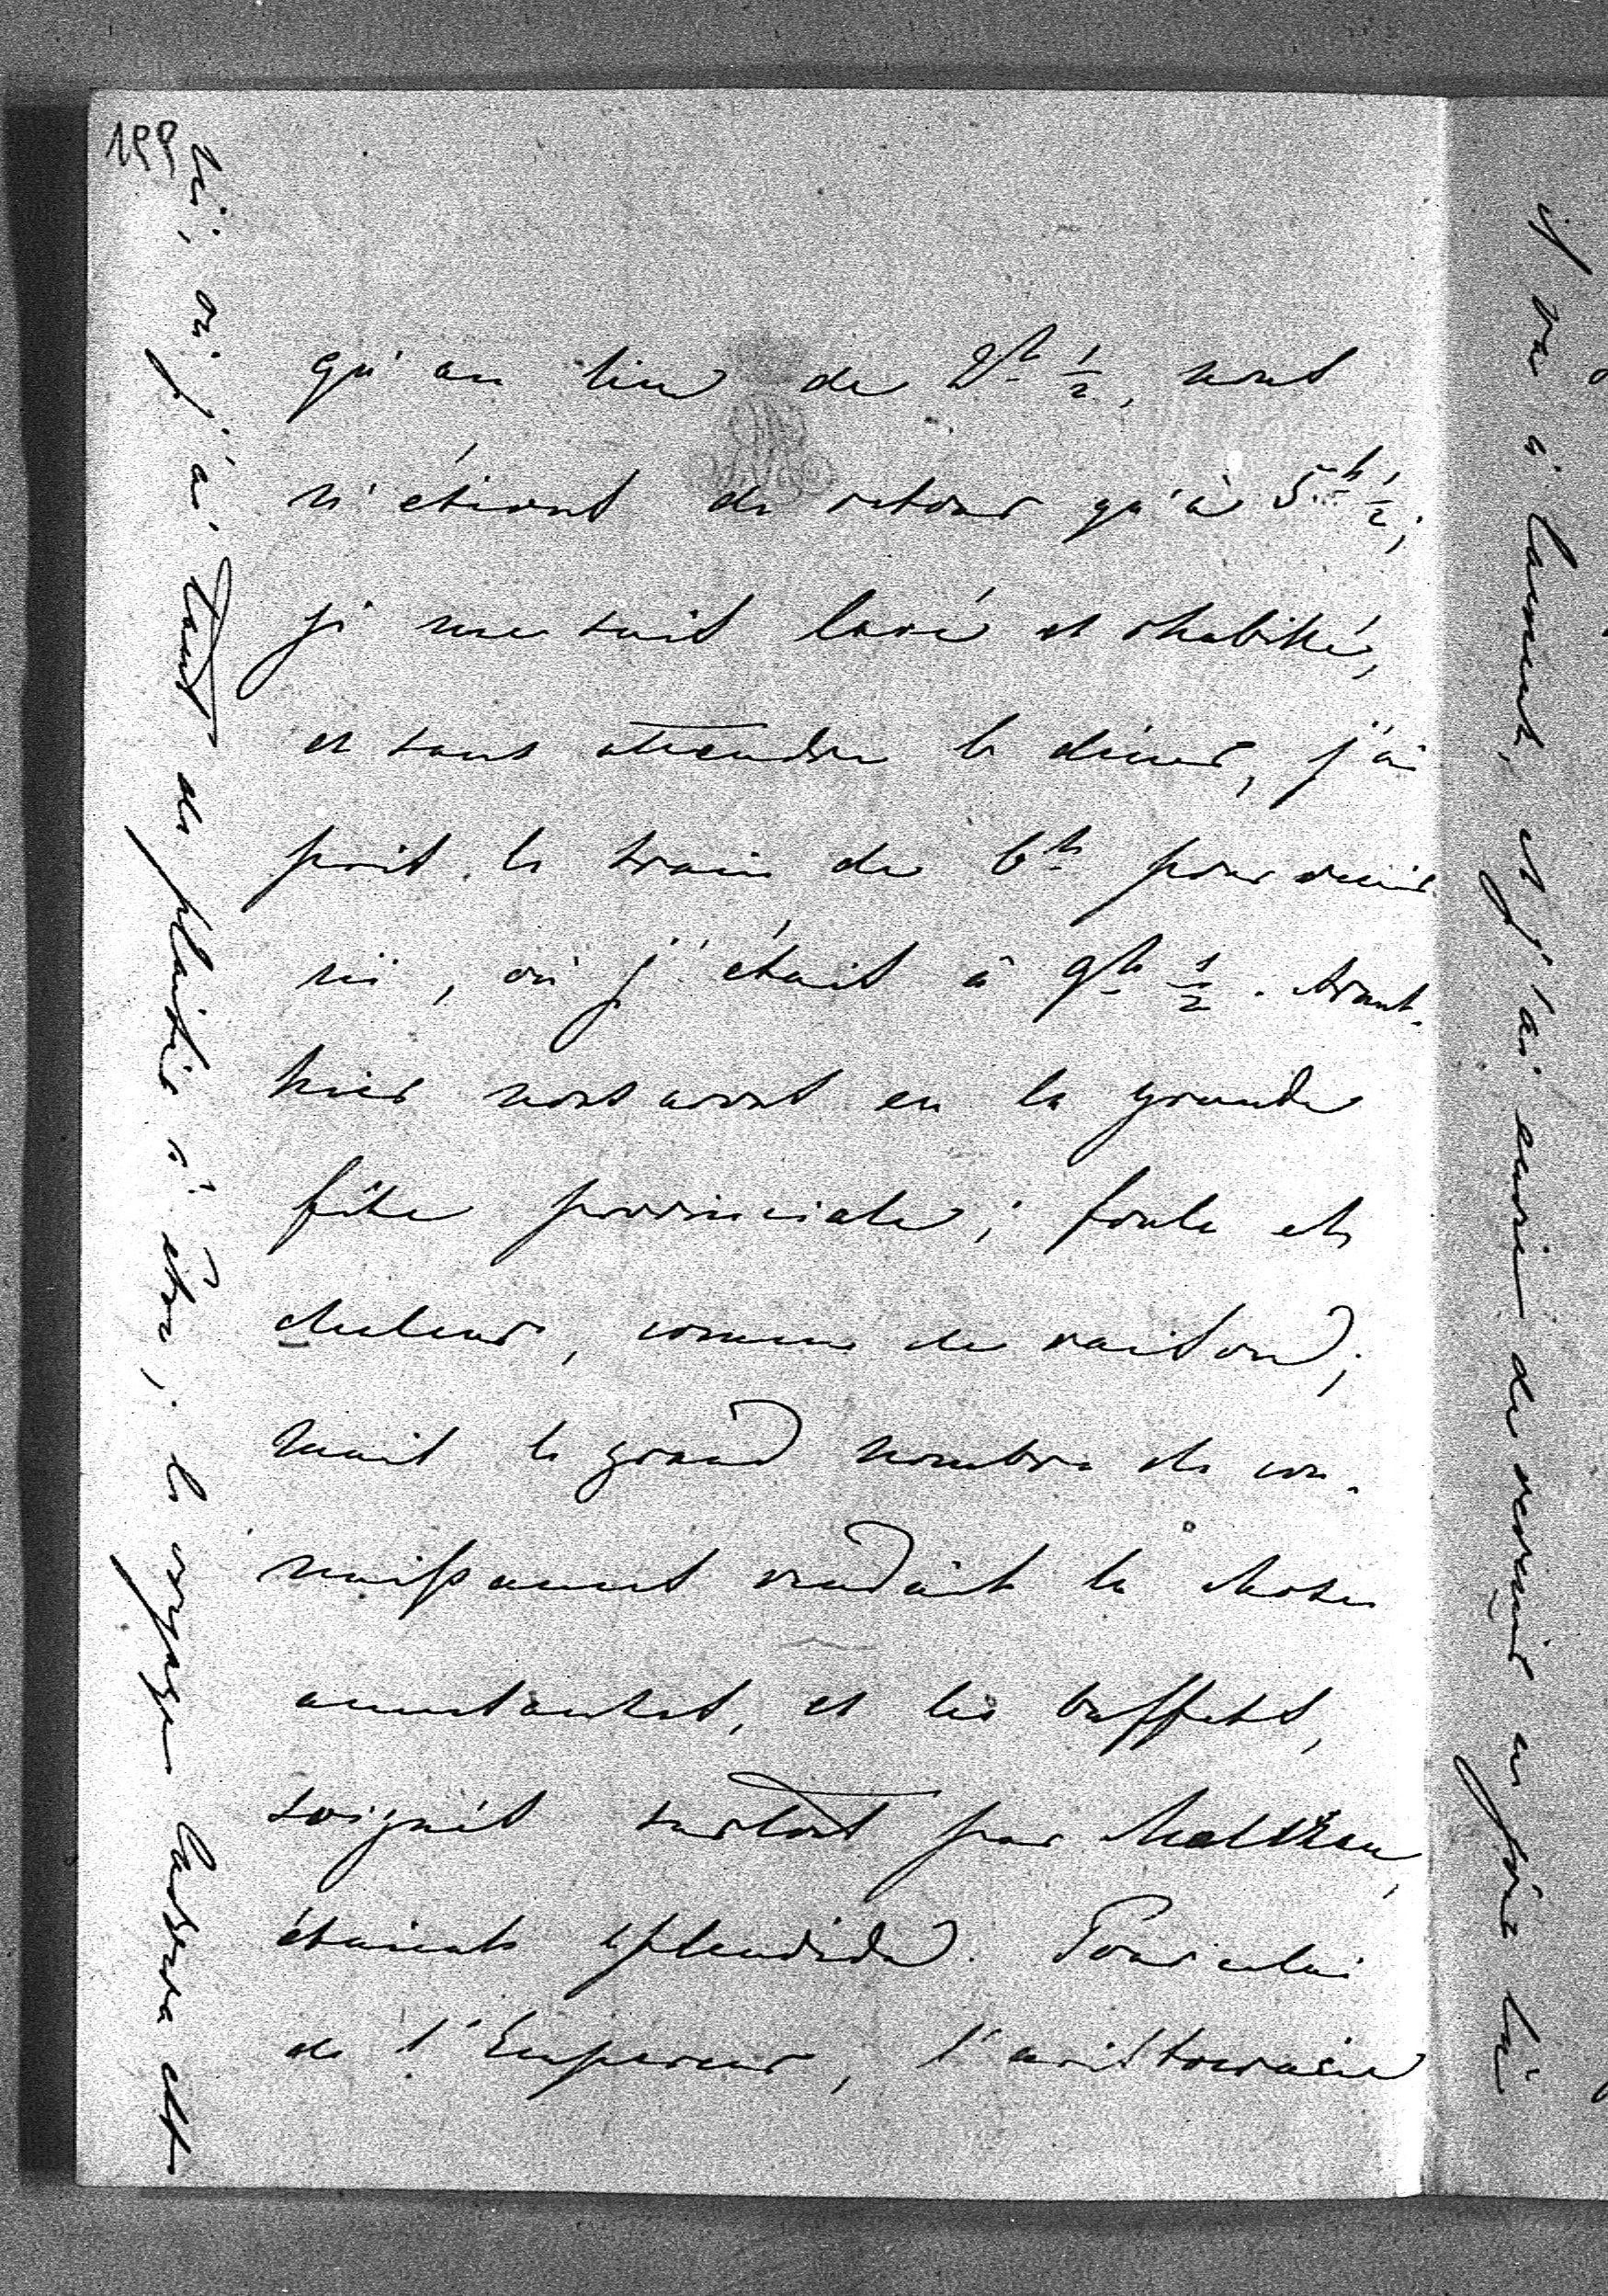 199
qu'au lieu de 2h ½, nous
n'étions de retour qu'à 5h ½;
je me suis lavé et rhabillé,
et sans attendre le dîner, j'ai
pris le train de 6h pour venir
ici, où j'étais à 9h ½. Avant-
hier nous avons eu la grande
fête provinciale; foule et
chaleur, comme de raison;
mais le grand nombre de con-
naissances rendait la chose
amusante, et les buffets,
soignés surtout par
étaient splendides. Pour celui
de l'Empereur, l'aristocratie
ici, où j'ai tant de plaisir à être, le voyage
est
il va à Laxenb. et j'ai envie de revenir